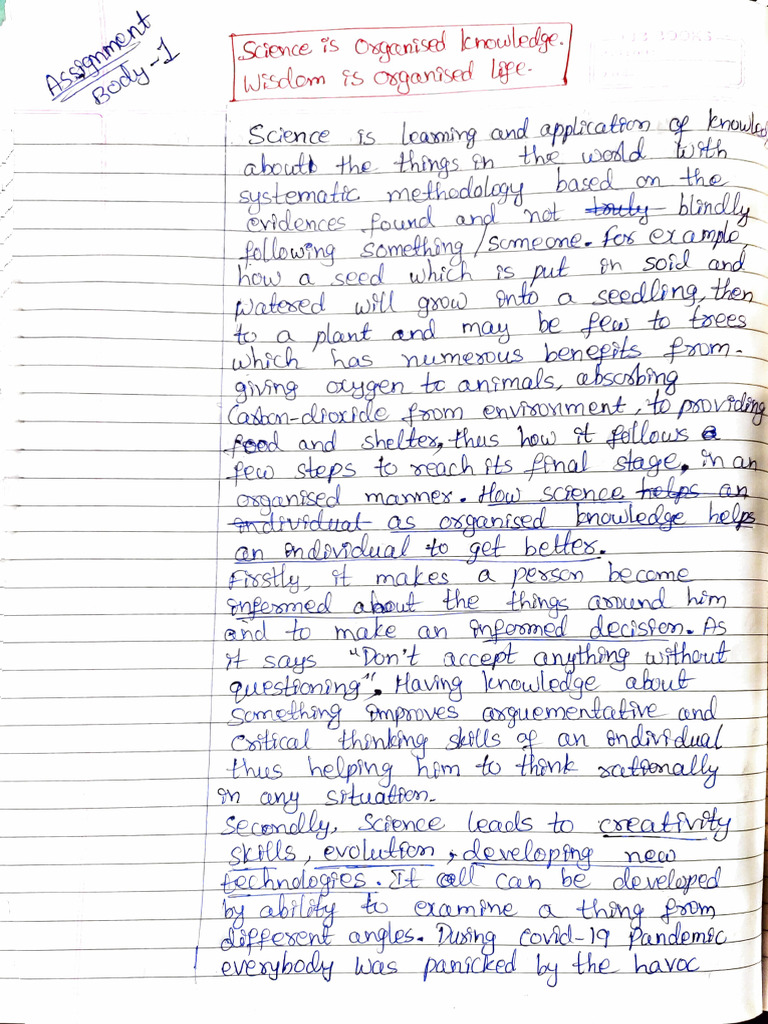 Assignment
Body-1
Science is Organised knowledge.
Wisdom is organised life.
Science is learning and application of knowled
about the things in the world with
systematic methodology based on the
evidences found and not truly blindly
following something/someone. For example,
how a seed which is put in soid and
watered will grow into a seedling, then
to a plant and may be few to trees
which has numerous benefits from
giving oxygen to animals, absorbing
Carbon-dioxide from environment, to providing
food and shelter, thus how it follows a
few steps to reach its final stage, in an
organised manner. How science helps an
individual as organised knowledge helps
an individual to get better.
Firstly, it makes a person become
informed about the things around him
and to make an informed decision. As
it says "Don't accept anything without
questioning". Having knowledge about
something improves arguementative and
critical thinking skills of an individual
thus helping him to think rationally
in any situation.
Secondly, Science leads to creativity
skills, evolution, developing new
technologies. It can be developed
by ability to examine a thing from
different angles. During covid-19 Pandemic
everybody was panicked by the havoc